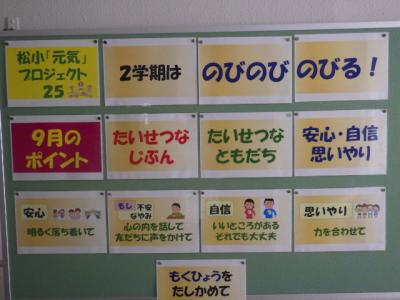 松小「元気」
プロジェクト
25
2学期は
のびのび
のびる！
9月の
ポイント
たいせつな
じぶん
たいせつな
ともだち
安心・自信
思いやり
安心
明るく落ち着いて
もし 不安
なやみ
心の内を話して
友だちに声をかけて
自信
いいところがある
それでも大丈夫
思いやり
力を合わせて
もくひょうを
たしかめて